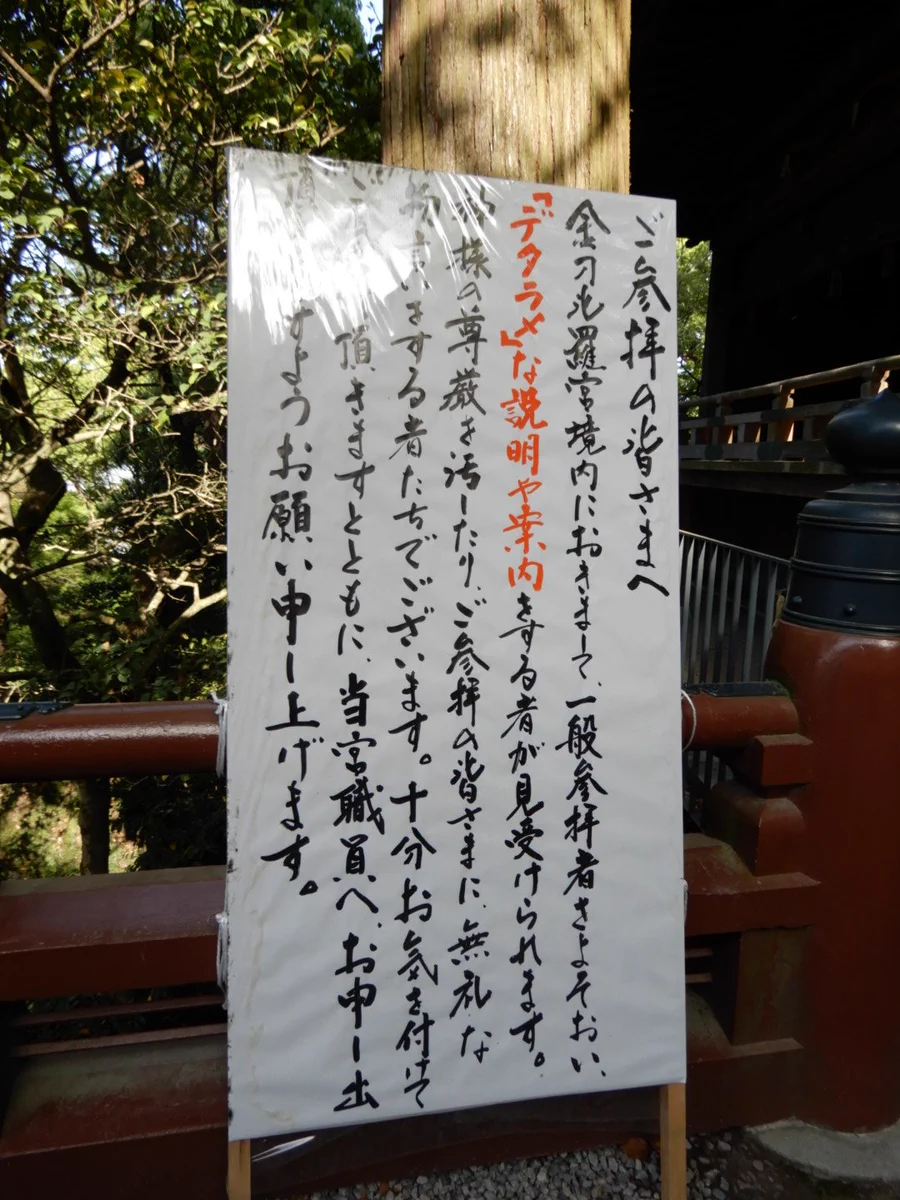 ご参拝の皆さまへ
金刀比羅宮境内におきまして、一般参拝者をよそおい、
『デタラメ』な説明や案内をする者が見受けられます。
神様の尊厳を汚したり、ご参拝の皆さまに、無礼な
物言いをする者たちでございます。十分お気を付けて
ご 頂きますとともに、当宮職員へ、お申し出
頂 すようお願い申し上げます。